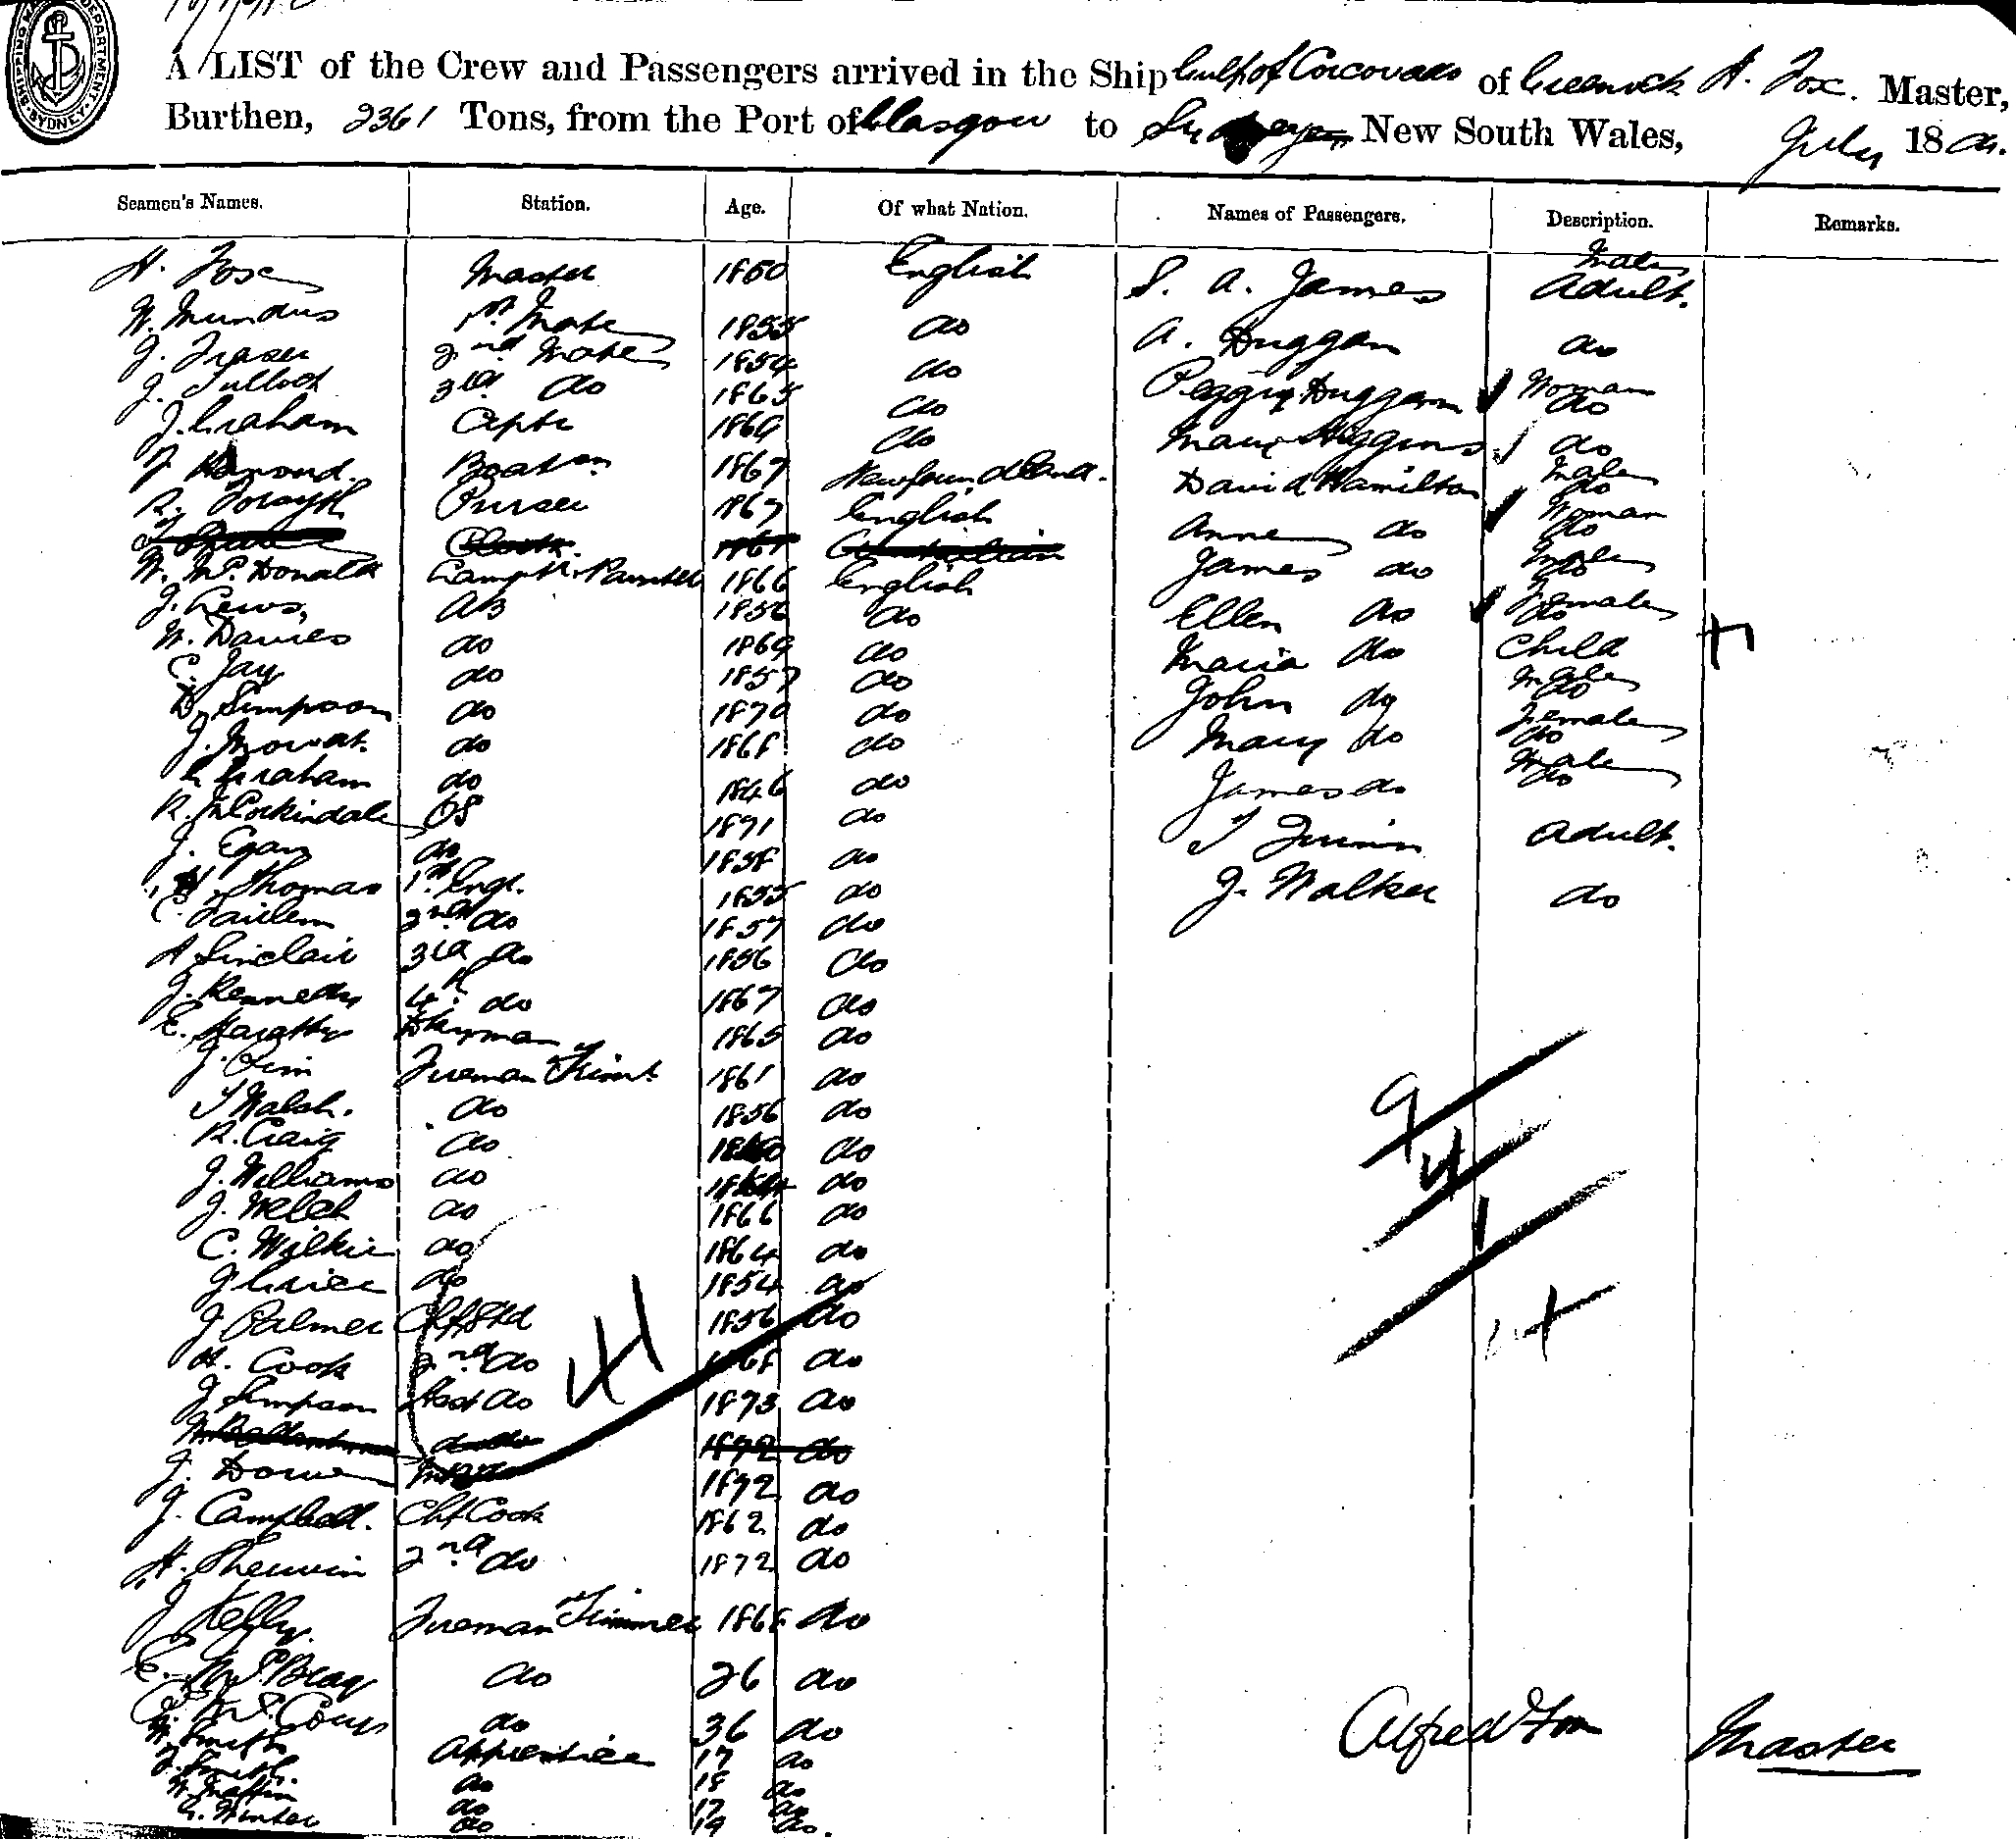 SHIPPING MASTER'S DEPARTMENT. SYDNEY
A LIST of the Crew and Passengers arrived in the Ship Gulf of Corcovado of Greenock A. Fox. Master,
Burthen, 2361 Tons, from the Port of Glasgow to New South Wales, July 18
Seamen's Names. Station. Age. Of what Nation. Names of Passengers. Description. Remarks.
A. Fox Master 1860 English S. A. James Male Adult.
W. Mundus 1st Mate 1855 do A. Duggan do
J. Fraser 2nd Mate 1854 do Peggy Duggan Woman do
J. Tulloch 3rd do 1865 do Mary Higgins do
J. Graham Cptr 1869 do David Hamilton Male do
Boatsn 1867 Newfoundland. Anne do Woman do
R. Forsyth Purser 1867 English James do Male do
W. McDonald Lamptr. 1866 English Ellen do Female do
J. Lewis, AB 1856 do Maria do Child
W. Davies do 1869 do John do Male do
C. Jay do 1857 do Mary do Female do
D. Simpson do 1870 do James do Male do
J. Mowat. do 1868 do T Quinn Adult.
Graham do 1846 do J. Walker do
R. McCorkindale OS 1871 do
J. Egan do 1858 do
Thomas 1st Engr. 1855 do
C. 2nd do 1857 do
A Sinclair 3rd do 1856 do
J. Kennedy 4th do 1867 do
E. Dkyman 1865 do
J. Sim Fireman Trimr. 1861 do
T Walsh. do 1856 do
R. Craig do do
J. Williams do do
J. Welch do 1866 do
C. Wilkie do 1864 do
J Grier do 1854 do
J Palmer Chf Std 1856 do
A. Cook 2nd do 1868 do
J Simpson Asst do 1873 do
1872 do
J. 1872 do
J. Campbell. Chf Cook 1862 do
A. Sherwin 2nd do 1872 do
J Kelly. Fireman Trimmer 1868 do
E. do 26 do
do 36 do
W. Smith Apprentice 17 do
J. Smith. do 18 do
W. Maffin do 17 do
G. Winter do 19 do.
9
4
1
14
41
Alfred Fox Master